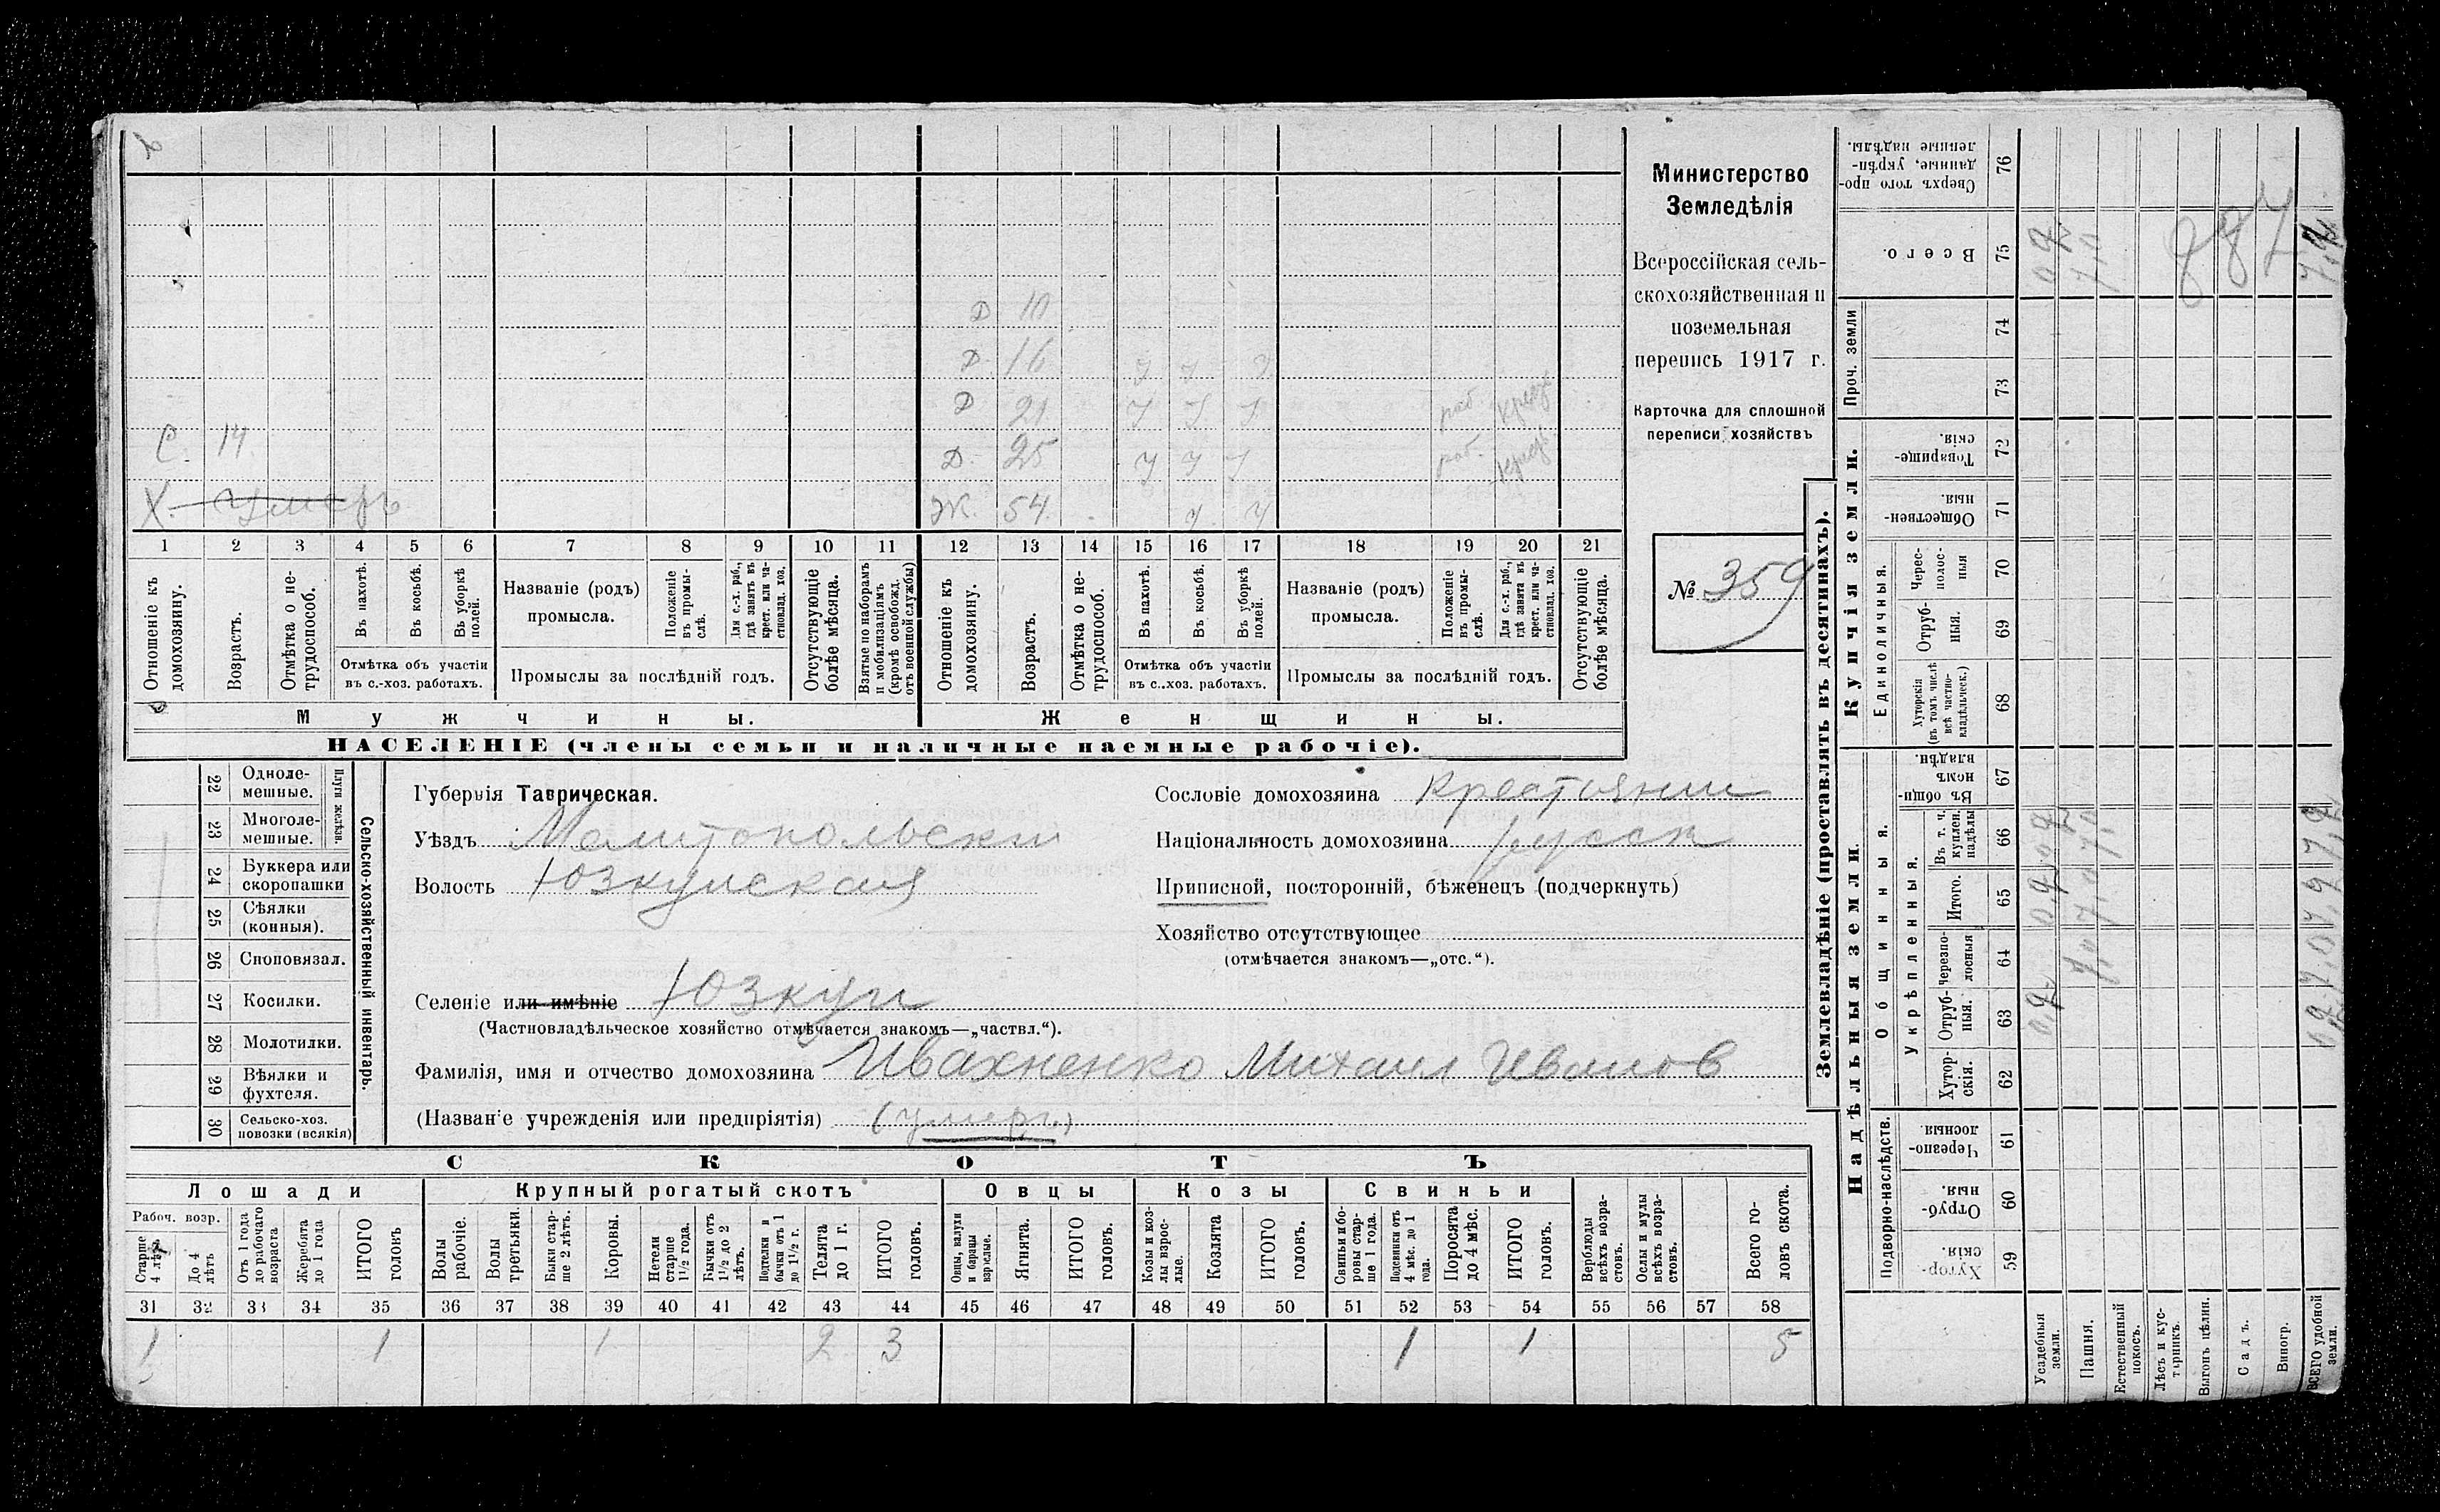 С. 14.
Х. Умеръ
Д 10
Д. 16 У У У
Д 21 У У У раб. крест.
Д. 25 У У У раб. крест.
Ж. 54. У У
1 2 3 4 5 6 7 8 9 10 11 12 13 14 15 16 17 18 19 20 21
Отношеніе къ домохозяину.
Возрастъ.
Отмѣтка о нетрудоспособ.
Въ пахотѣ.
Въ косьбѣ.
Въ уборкѣ полей.
Отмѣтка объ участіи въ с.-хоз. работахъ.
Названіе (родъ) промысла.
Положеніе въ промыслѣ.
Для с.-х. раб., гдѣ занятъ въ крест. или частновлад. хоз.
Промыслы за послѣдній годъ.
Отсутствующіе болѣе мѣсяца.
Взятые по наборамъ и мобилизаціямъ (кромѣ освобожд. отъ военной службы)
Отношеніе къ домохозяину.
Возрастъ.
Отмѣтка о нетрудоспособ.
Въ пахотѣ.
Въ косьбѣ.
Въ уборкѣ полей.
Отмѣтка объ участіи въ с..хоз. работахъ.
Названіе (родъ) промысла.
Положеніе въ промыслѣ.
Для с.-х. раб., гдѣ занята въ крест. или частновлад. хоз.
Промыслы за послѣдній годъ.
Отсутствующіе болѣе мѣсяца.
Мужчины.
Женщины.
НАСЕЛЕНІЕ (члены семьи и наличные наемные рабочіе).
Министерство
Земледѣлія
Всероссійская сель-
скохозяйственная и
поземельная
перепись 1917 г.
Карточка для сплошной
переписи хозяйствъ
№ 359
22 Одноле-
мешные.
23 Многоле-
мешные.
Плуги желѣзн.
24 Буккера или
скоропашки
25 Сѣялки
(конныя).
26 Споповязал.
27 Косилки.
28 Молотилки.
29 Вѣялки и
фухтеля.
30 Сельско-хоз.
повозки (всякія)
Сельско-хозяйственный инвентарь.
Губернія Таврическая.
Уѣздъ Мелитопольски
Волость Юзкуйская
Селеніе или имѣніе Юзкуи
(Частновладѣльческое хозяйство отмѣчается знакомъ—„частвл.“).
Фамилія, имя и отчество домохозяина Ивахненко Михаил Иванов
(Названіе учрежденія или предпріятія) (умеръ)
Сословіе домохозяина Крестьянин
Національность домохозяина русск
Приписной, посторонній, бѣженецъ (подчеркнуть)
Хозяйство отсутствующее
(отмѣчается знакомъ—„отс.“).
СКОТЪ
Лошади
Крупный рогатый скотъ
Овцы
Козы
Свиньи
Рабоч. возр.
Старше 4 лѣтъ
До 4 лѣтъ
Отъ 1 года до рабочаго возраста
Жеребята до 1 года
ИТОГО головъ
Волы рабочіе.
Волы третьяки.
Быки старше 2 лѣтъ.
Коровы.
Нетели старше 1½ года.
Бычки отъ 1½ до 2 лѣтъ.
Подтелки и бычки отъ 1 до 1½ г.
Телята до 1 г.
ИТОГО головъ.
Овцы, валухи и бараны взрослые.
Ягнята.
ИТОГО головъ.
Козы и козлы взрослые.
Козлята
ИТОГО головъ.
Свиньи и боровы старше 1 года.
Подсвинки отъ 4 мѣс. до 1 года.
Поросята до 4 мѣс.
ИТОГО головъ.
Верблюды всѣхъ возрастовъ.
Ослы и мулы всѣхъ возрастовъ.
Всего головъ скота.
31 32 33 34 35 36 37 38 39 40 41 42 43 44 45 46 47 48 49 50 51 52 53 54 55 56 57 58
1 1 1 2 3 1 1 5
Землевладѣніе (проставлять въ десятинахъ).
Надѣльныя земли.
Купчія земли.
Проч. земли
Подворно-наслѣдств.
Общинныя.
Укрѣпленныя.
Единоличныя.
Хуторскія 59
Отрубныя. 60
Черезполосныя. 61
Хуторскія. 62
Отрубныя. 63
черезполосныя 64
Итого. 65
Въ т. ч. куплен. надѣлы 66
Въ общинномъ владѣн. 67
Хуторскія (въ томъ числѣ всѣ частновладѣльческ.) 68
Отрубныя. 69
Чересполосныя 70
Общественныя 71
Товарищескія. 72
73
74
Всего. 75
Сверхъ того проданные, укрѣпленные надѣлы. 76
Усадебныя земли.
Пашня.
Естественный покосъ.
Лѣсъ и кустарникъ.
Выгонъ цѣлин.
Садъ.
Виногр.
ВСЕГО удобной земли.